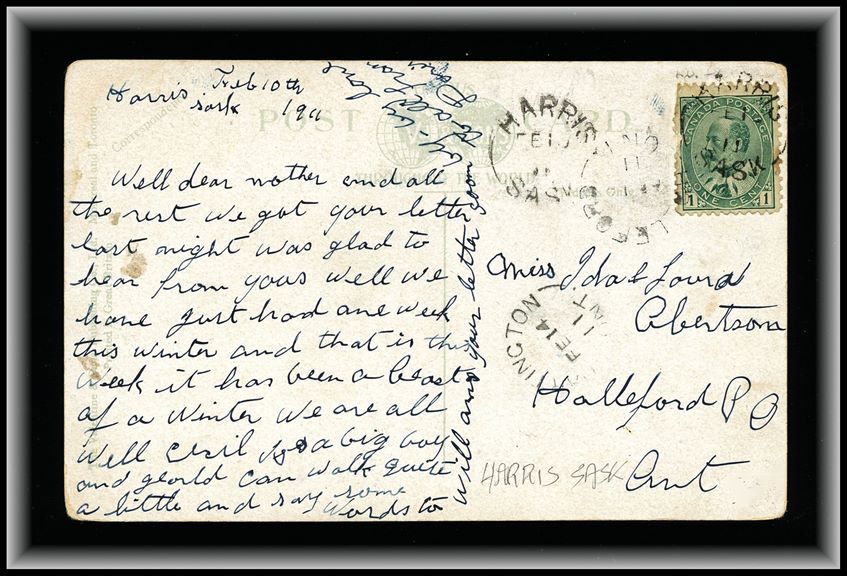 Harris Feb 10th
Sask 1911
POST CARD
THROUGHOUT THE WORLD
Well dear mother and all
the rest we got your letter
last night was glad to
hear from yous well we
have just had one week
this winter and that is this
week it has been a beast
of a winter we are all
well Cecil is a big boy
and gearld can walk quite
a little and say some
words to
will and your letter soon
by by love
to all from
HARRIS
FE 10
11
SASK
HARRIS
FE 1
11
SASK
CANADA POSTAGE
1 ONE CENT 1
Miss Ida & Loura
Abertson
Halleford P O
Ont
INGTON
FE 14
11
ONT
HARRIS SASK